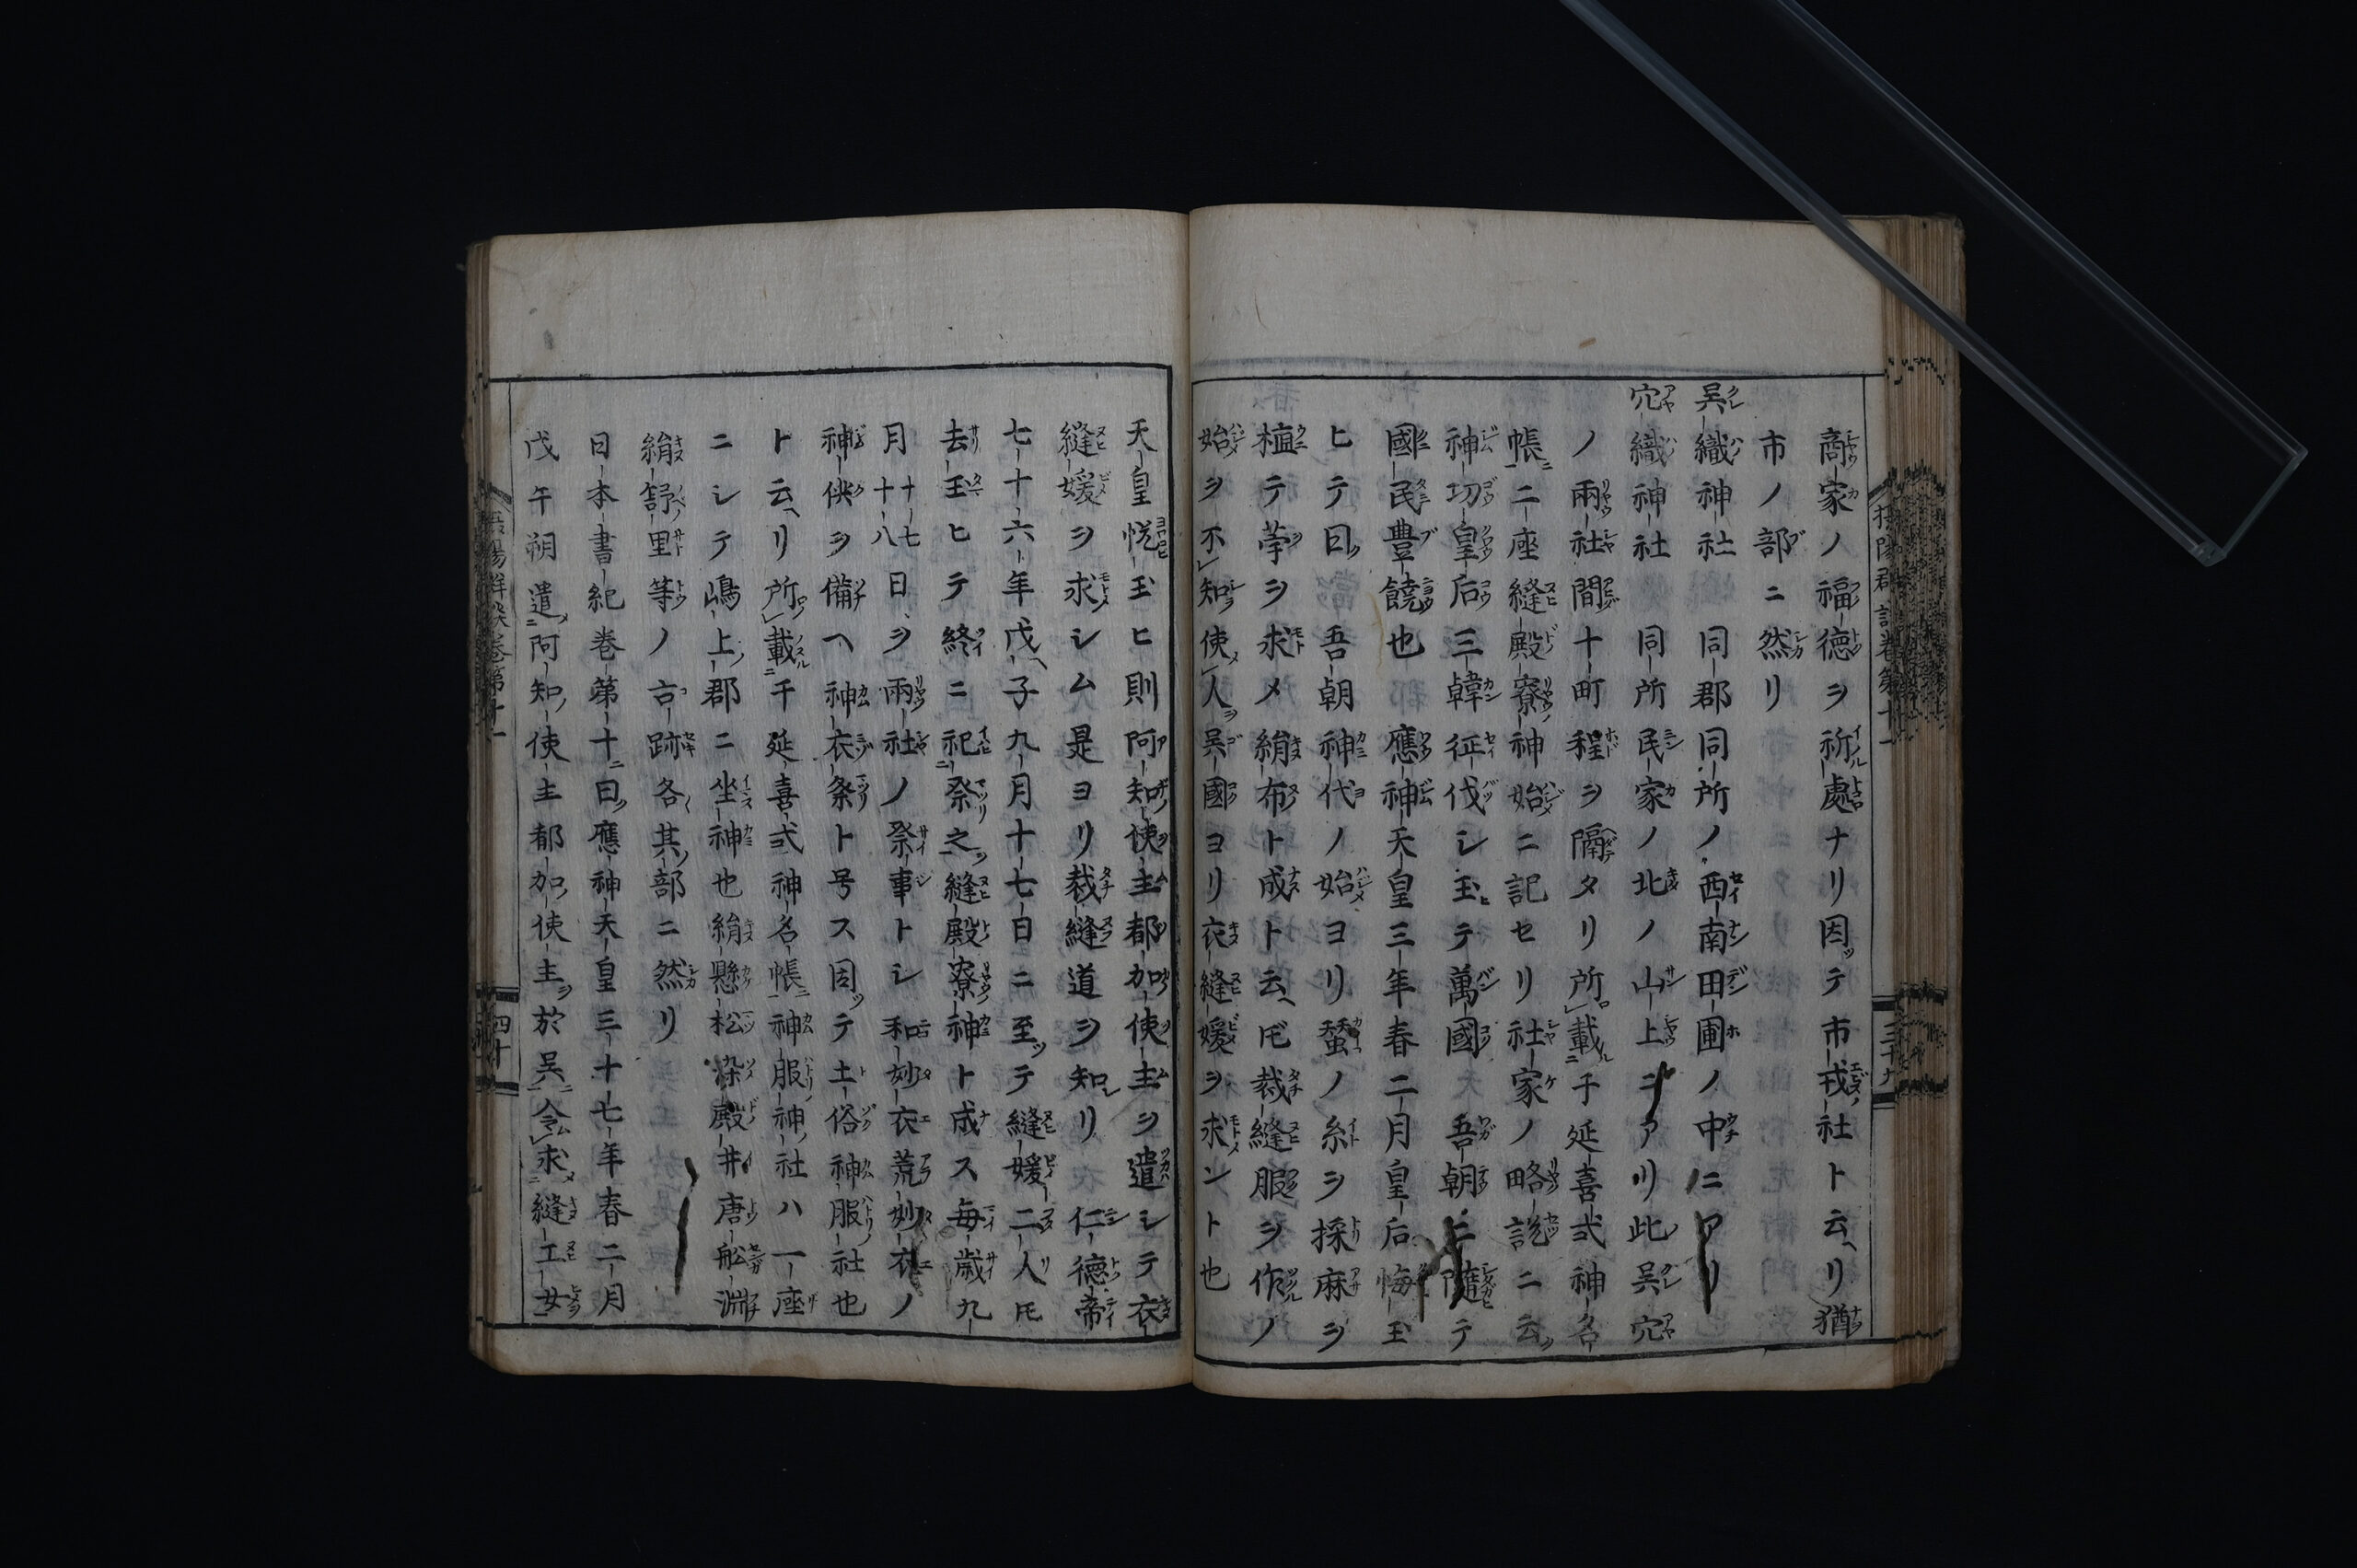 商家ノ福徳ヲ祈處ナリ因テ市戎社ト云リ猶
市ノ部ニ然リ
呉織神社 同郡同所ノ西南田圃ノ中ニアリ
穴織神社 同所民家ノ北ノ山上ニアリ此呉穴
ノ兩社間十町程ヲ隔タリ所載于延喜式神名
帳二座縫殿寮神始ニ記セリ社家ノ略説ニ云
神功皇后三韓征伐シ玉テ萬國吾朝ニ隨テ
國民豊饒也應神天皇三年春二月皇后悔玉
ヒテ曰吾朝神代ノ始ヨリ蚕ノ糸ヲ採麻ヲ
植テ苧ヲ求メ絹布ト成ト云㠪裁縫服ヲ作ノ
始ヲ不知使人呉國ヨリ衣縫媛ヲ求ント也
天皇悦玉ヒ則阿知使主都加使主ヲ遣シテ衣
縫媛ヲ求シム是ヨリ裁縫道ヲ知リ 仁德帝
七十六年戊子九月十七日ニ至テ縫媛二人㠪
去玉ヒテ終ニ祀祭之縫殿寮神ト成ス毎歳九
月十七十八日ヲ兩社ノ祭事トシ和妙衣荒妙衣ノ
神供ヲ備ヘ神衣祭ト号ス因テ土俗神服社也
ト云リ所載于延喜式神名帳神服神社ハ一座
ニシテ嶋上郡ニ坐神也絹懸松染殿井唐舩淵
絹䋡里等ノ古跡各其部ニ然リ
日本書紀巻第十曰應神天皇三十七年春二月
戊午朔遣阿知使主都加使主於呉令求縫工女